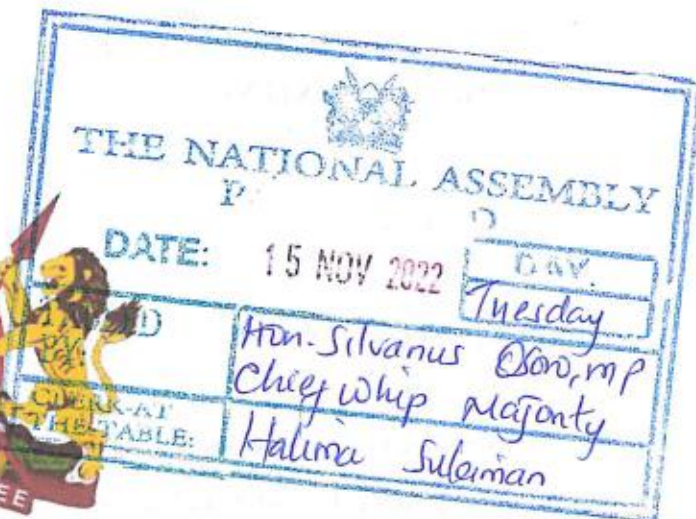 THE NATIONAL ASSEMBLY
DATE: 15 NOV 2022
DAY.
Tuesday
BY:
Hon. Silvanus Osoro, MP
Chief Whip Majority
CLERK-AT
THE-TABLE:
Halima Suleiman